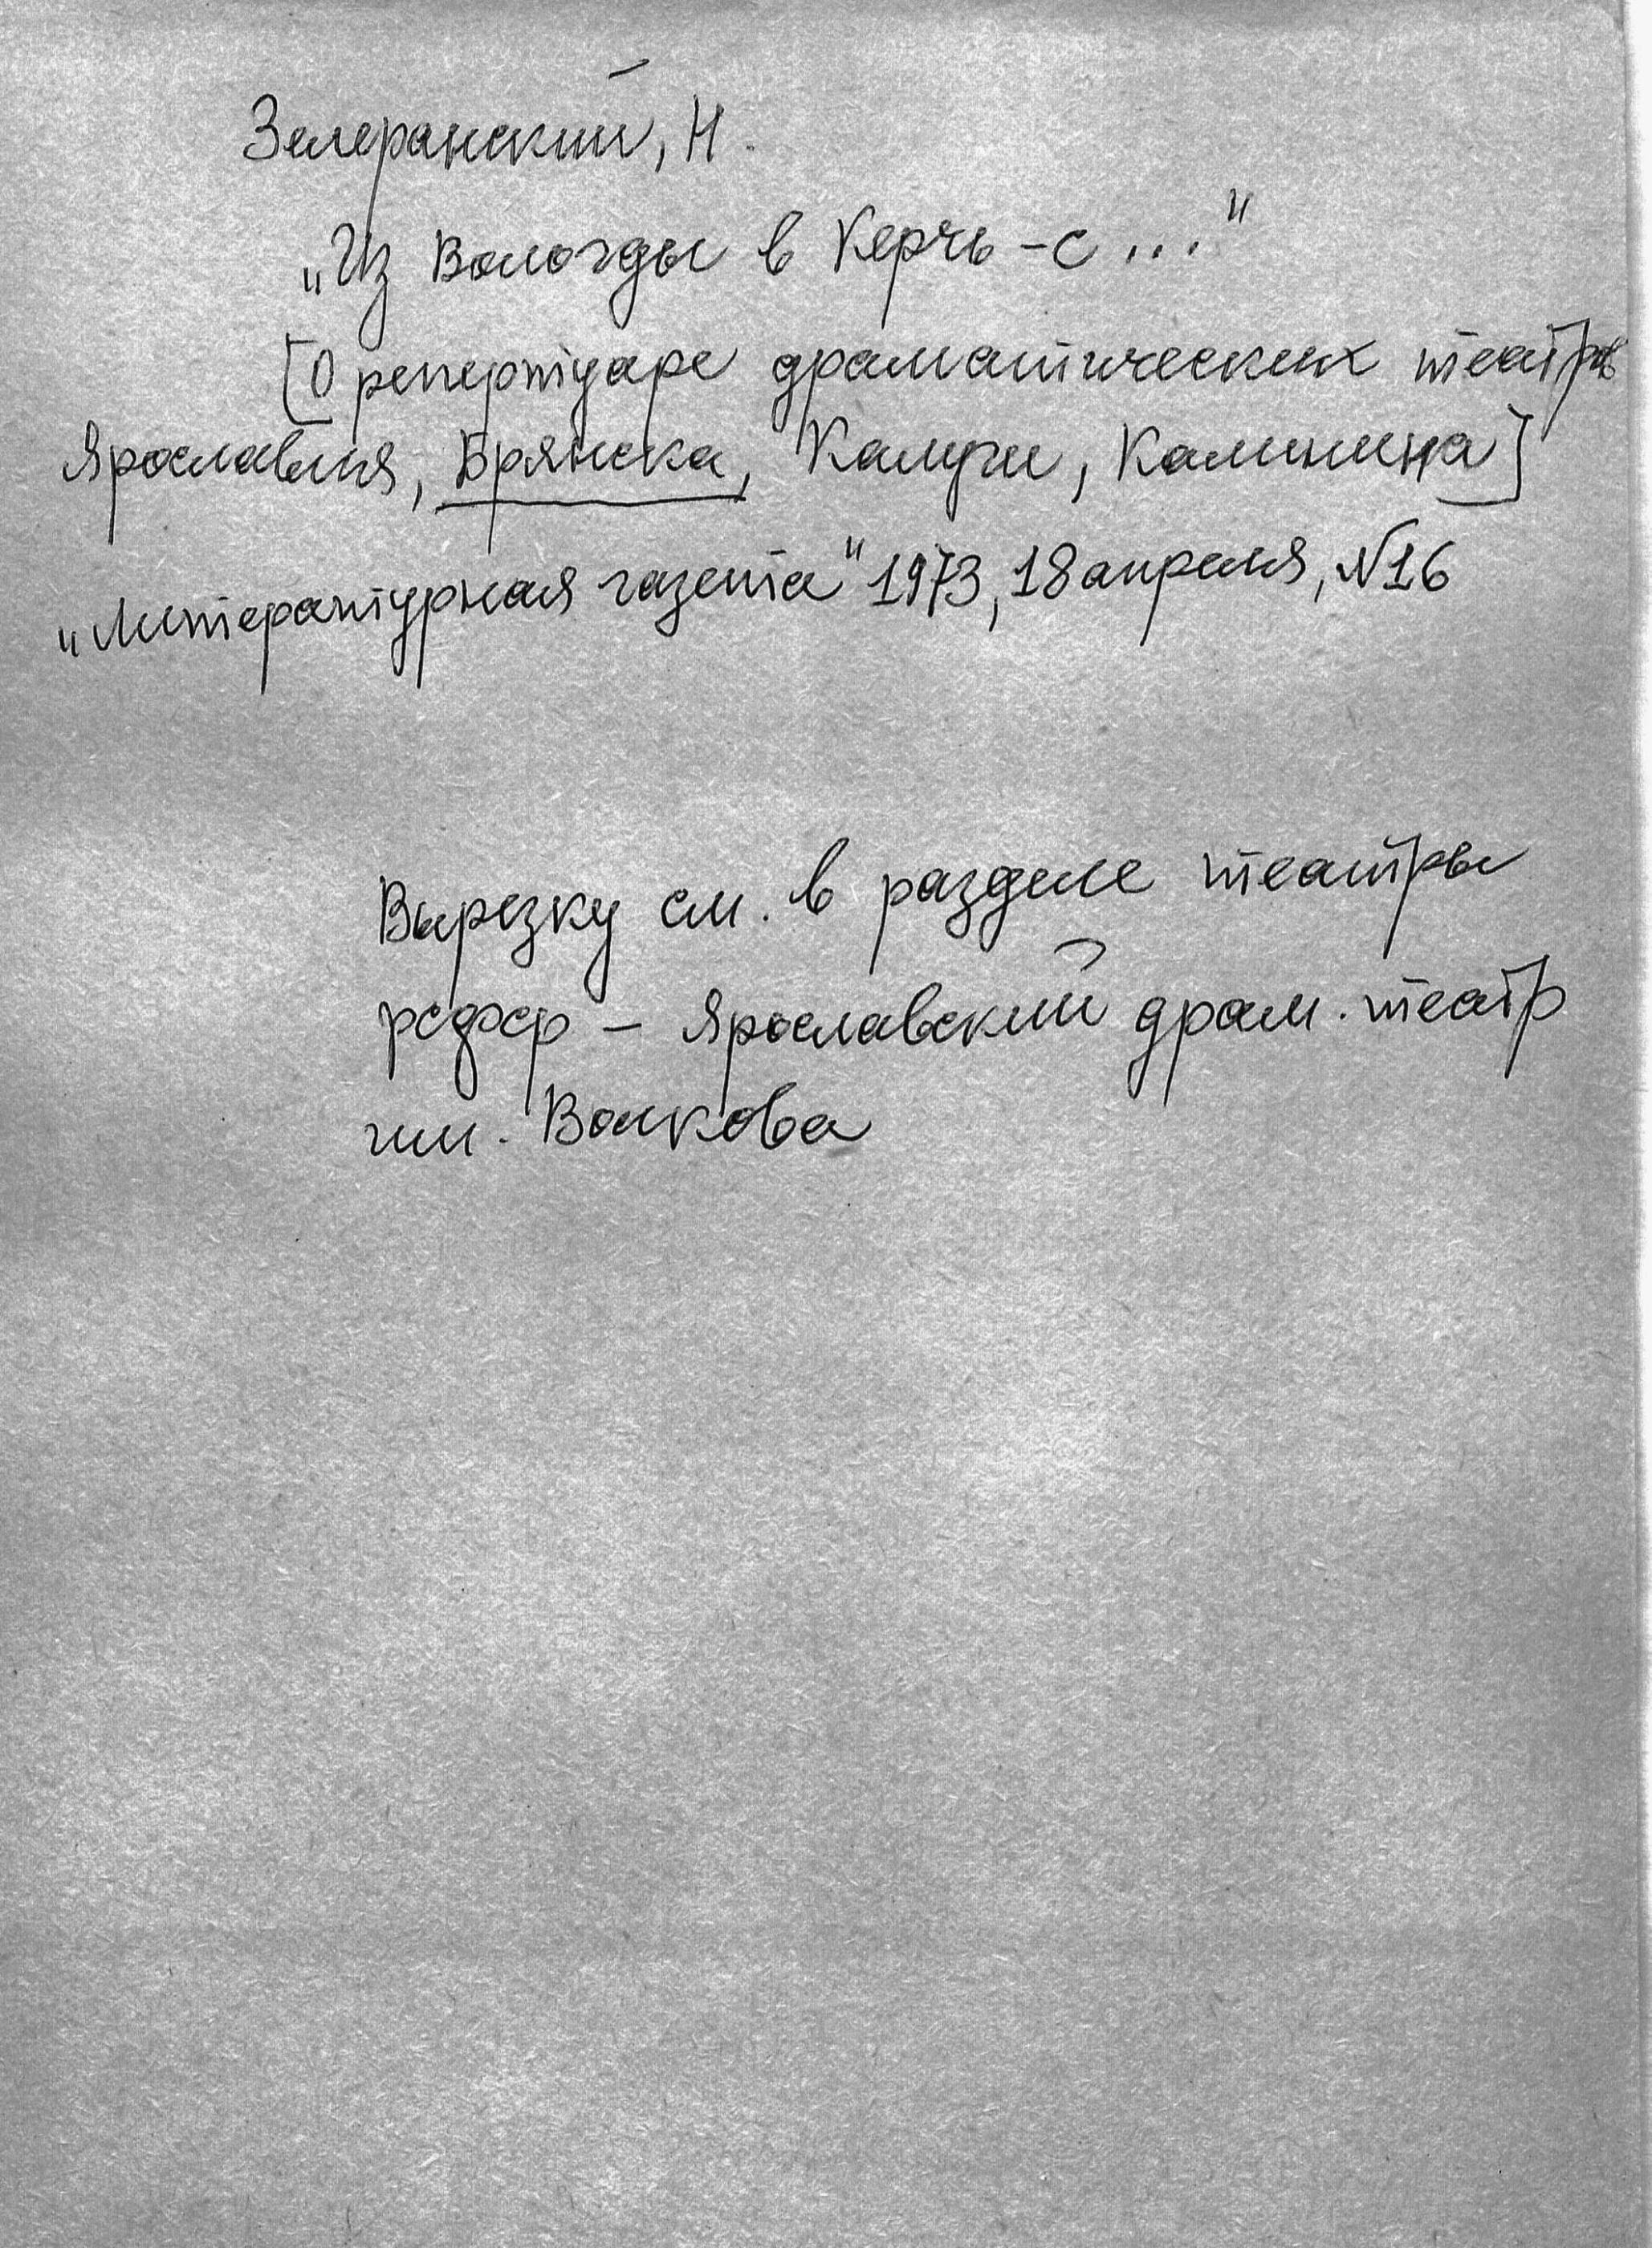 Зелеранский, Н.
„Из Вологды в Керчь-с..."
[О репертуаре драматических театров
Ярославля, Брянска, Калуги, Калинина]
„Литературная газета" 1973, 18 апреля, №16
Вырезку см. в разделе театры
РСФСР – Ярославский драм. театр
им. Волкова